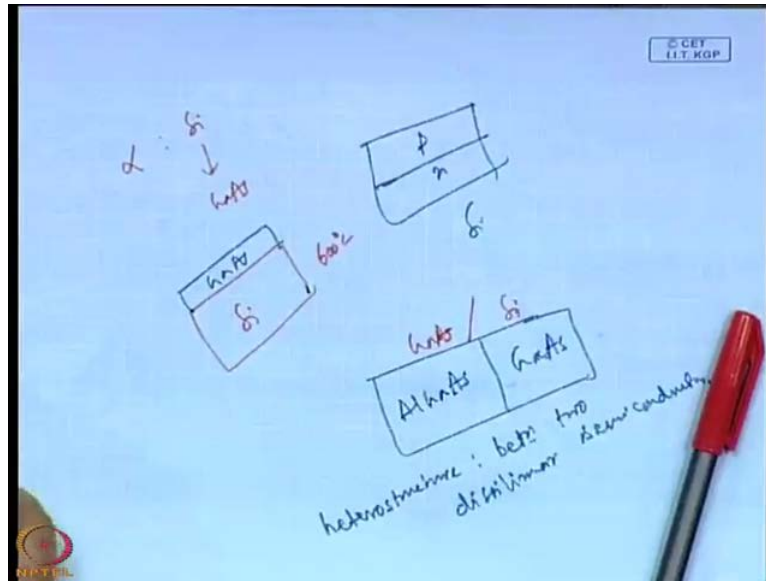 © CET
I.I.T. KGP
α : Si
↓
GaAs
GaAs
Si
600°C
P
n
Si
GaAs / Si
AlGaAs GaAs
heterostructure : betn two
dissilimar semiconductors
NPTEL